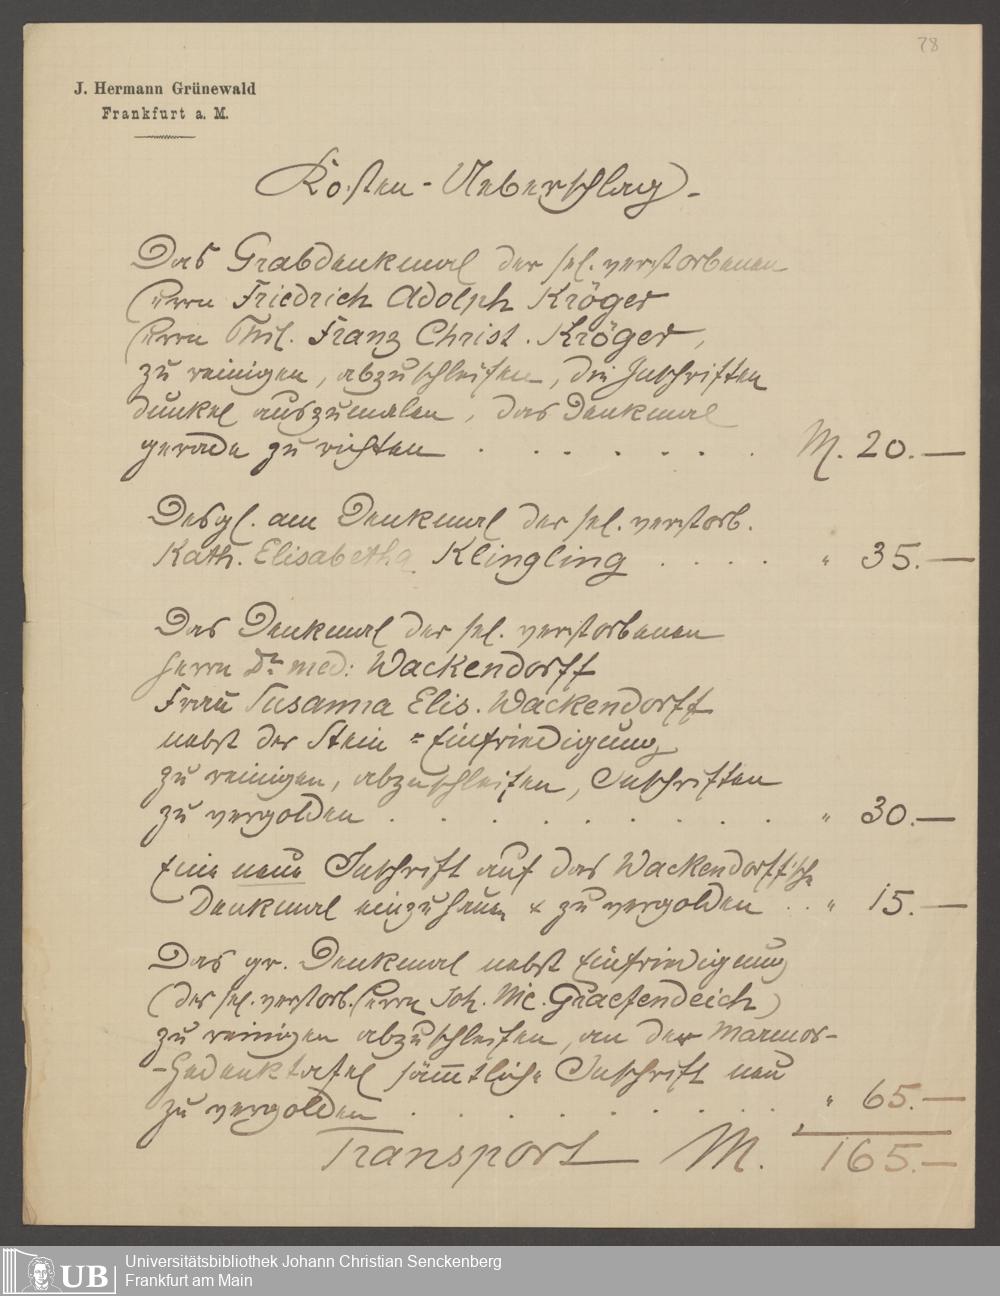 78
J. Hermann Grünewald
Frankfurt a. M.
Kosten-Ueberschlag.
Das Grabdenkmal der sel. verstorbenen
Herrn Friedrich Adolph Kröger
Herrn Phil. Franz Christ. Kröger,
zu reinigen, abzuschleifen, die Inschriften
dunkel auszumalen, das Denkmal
gerade zu richten . . . . . . M. 20.—
Desgl. am Denkmal der sel. verstorb.
Kath. Elisabetha Klingling . . . . " 35.—
Das Denkmal der sel. verstorbenen
Herrn Dr. med: Wackendorff
Frau Susanna Elis. Wackendorff
nebst der Stein-Einfriedigung
zu reinigen, abzuschleifen, Inschriften
zu vergolden . . . . . . . . " 30.—
Eine neue Inschrift auf das Wackendorff'sche
Denkmal einzuhauen & zu vergolden . . " 15.—
Das gr. Denkmal nebst Einfriedigung
(der sel. verstorb. Herrn Joh. Nic. Graefendeich)
zu reinigen abzuschleifen, an der Marmor-
-Gedenktafel sämmtliche Inschrift neu
zu vergolden . . . . . . . . " 65.—
Transport M. 165.—
UB
Universitätsbibliothek Johann Christian Senckenberg
Frankfurt am Main